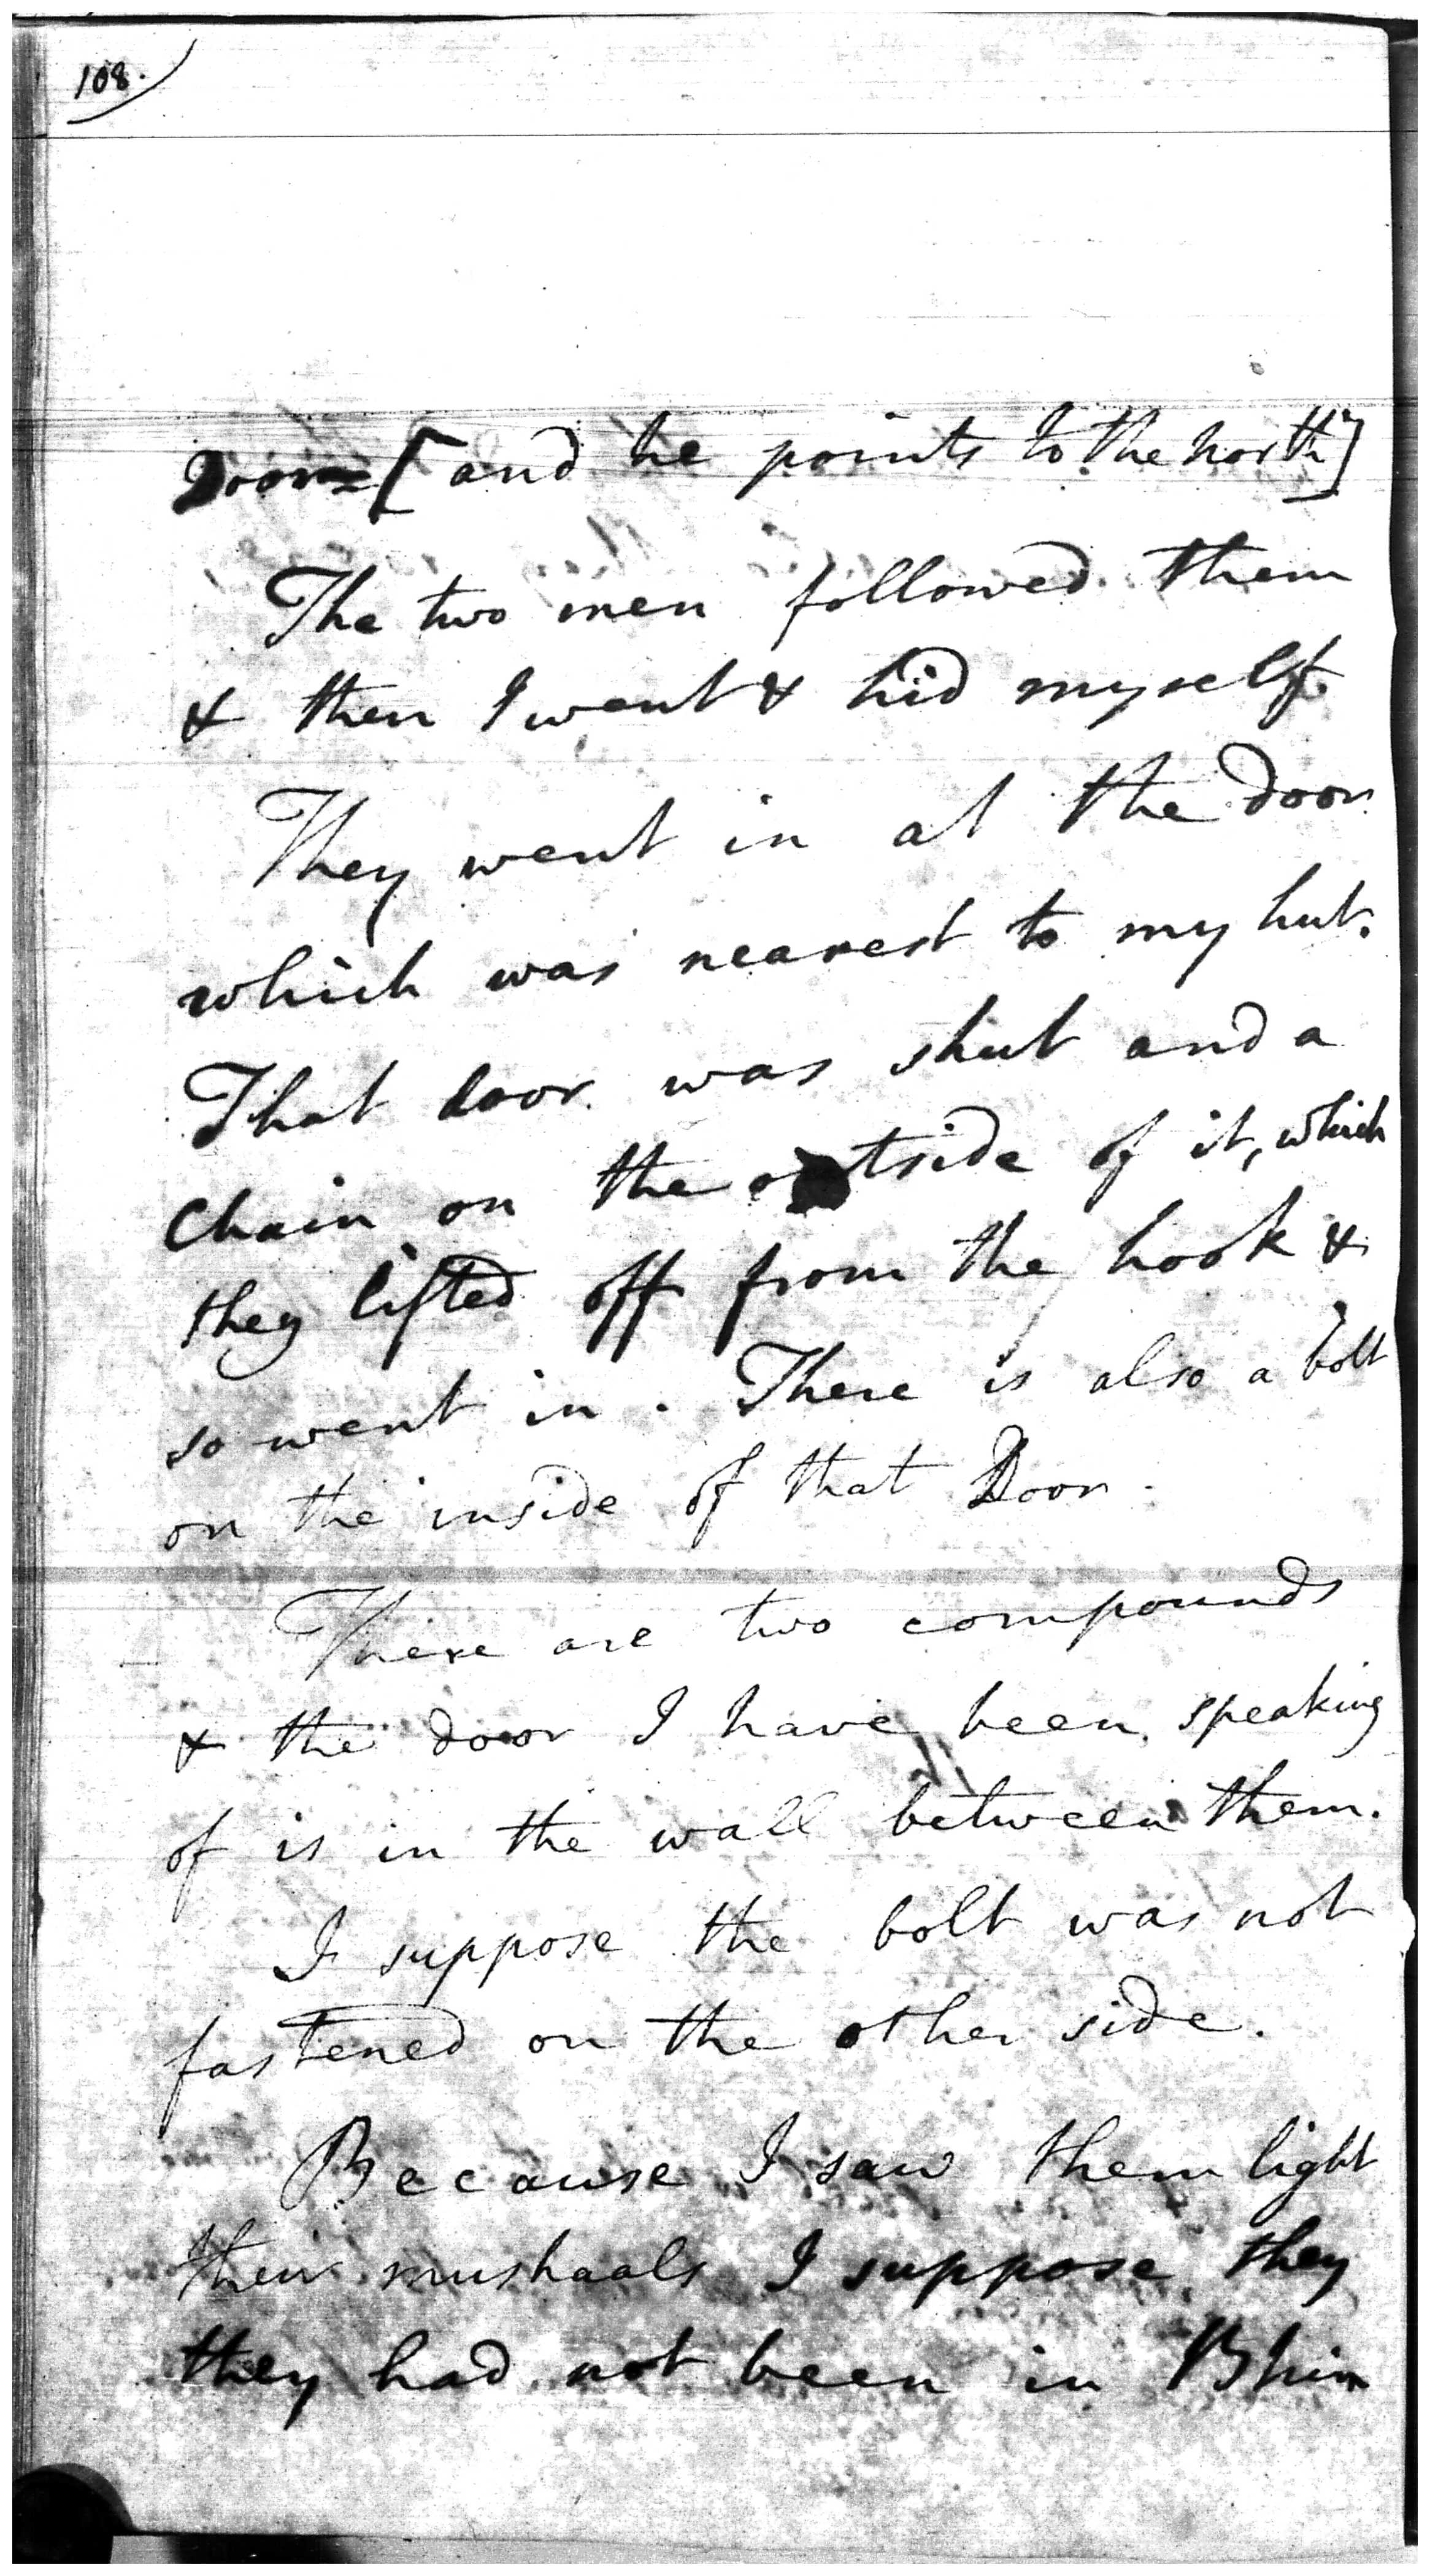 108.
Door [and he points to the north]
The two men followed them
& then I went & hid myself.
They went in at the door
which was nearest to my hut.
That door was shut and a
Chain on the outside of it, which
they lifted off from the hook &
so went in. There is also a bolt
on the inside of that Door.
There are two compounds
& the door I have been speaking
of is in the wall between them.
I suppose the bolt was not
fastened on the other side.
Because I saw them light
their mushaals I suppose they
they had not been in Bhim